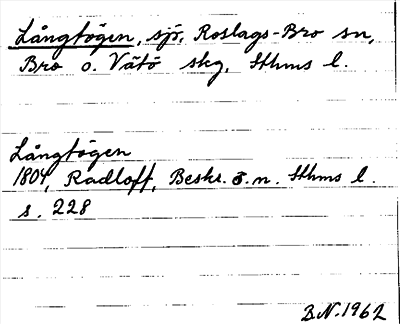 Långtögen, sjö, Roslags-Bro sn,
Bro o. Vätö skg, Sthms l.
Långtögen
1804, Radloff, Beskr. ö. n. Sthms l.
s. 228
B.N. 1962